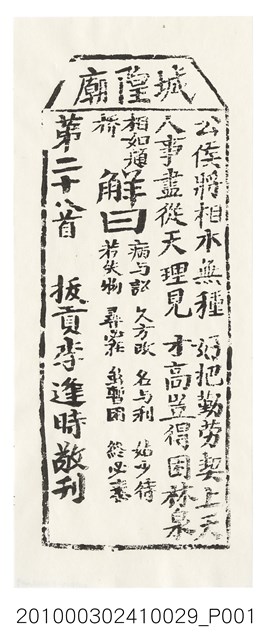 城隍廟
公侯將相本無種 好把勤勞契上天
人事盡從天理見 才高豈得困林泉
相如題橋
解曰
病与訟 久方改 名与利 姑少待
若失物 尋必在 虽暫困 終必泰
第二十八首 拔貢李逢時敬刊
201000302410029_P001